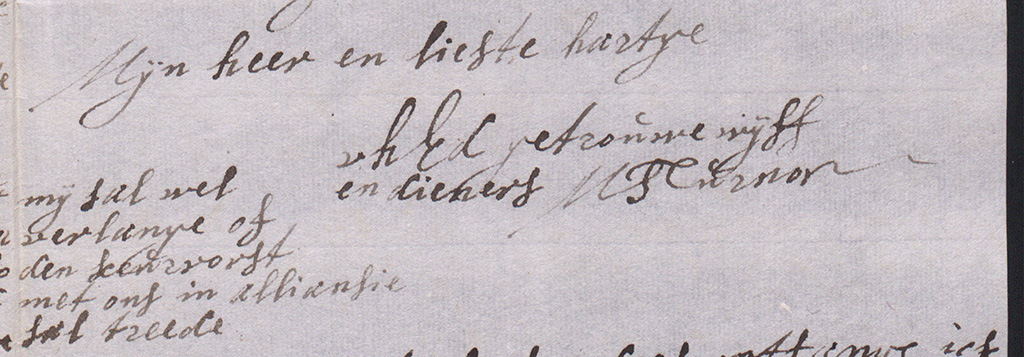 Mÿn heer en liefste hartye
uhEd getrouwe wÿff
en dieners M Turnor
mÿ sal wel
verlange of
den keurvorst
met ons in alliansie
sal treede